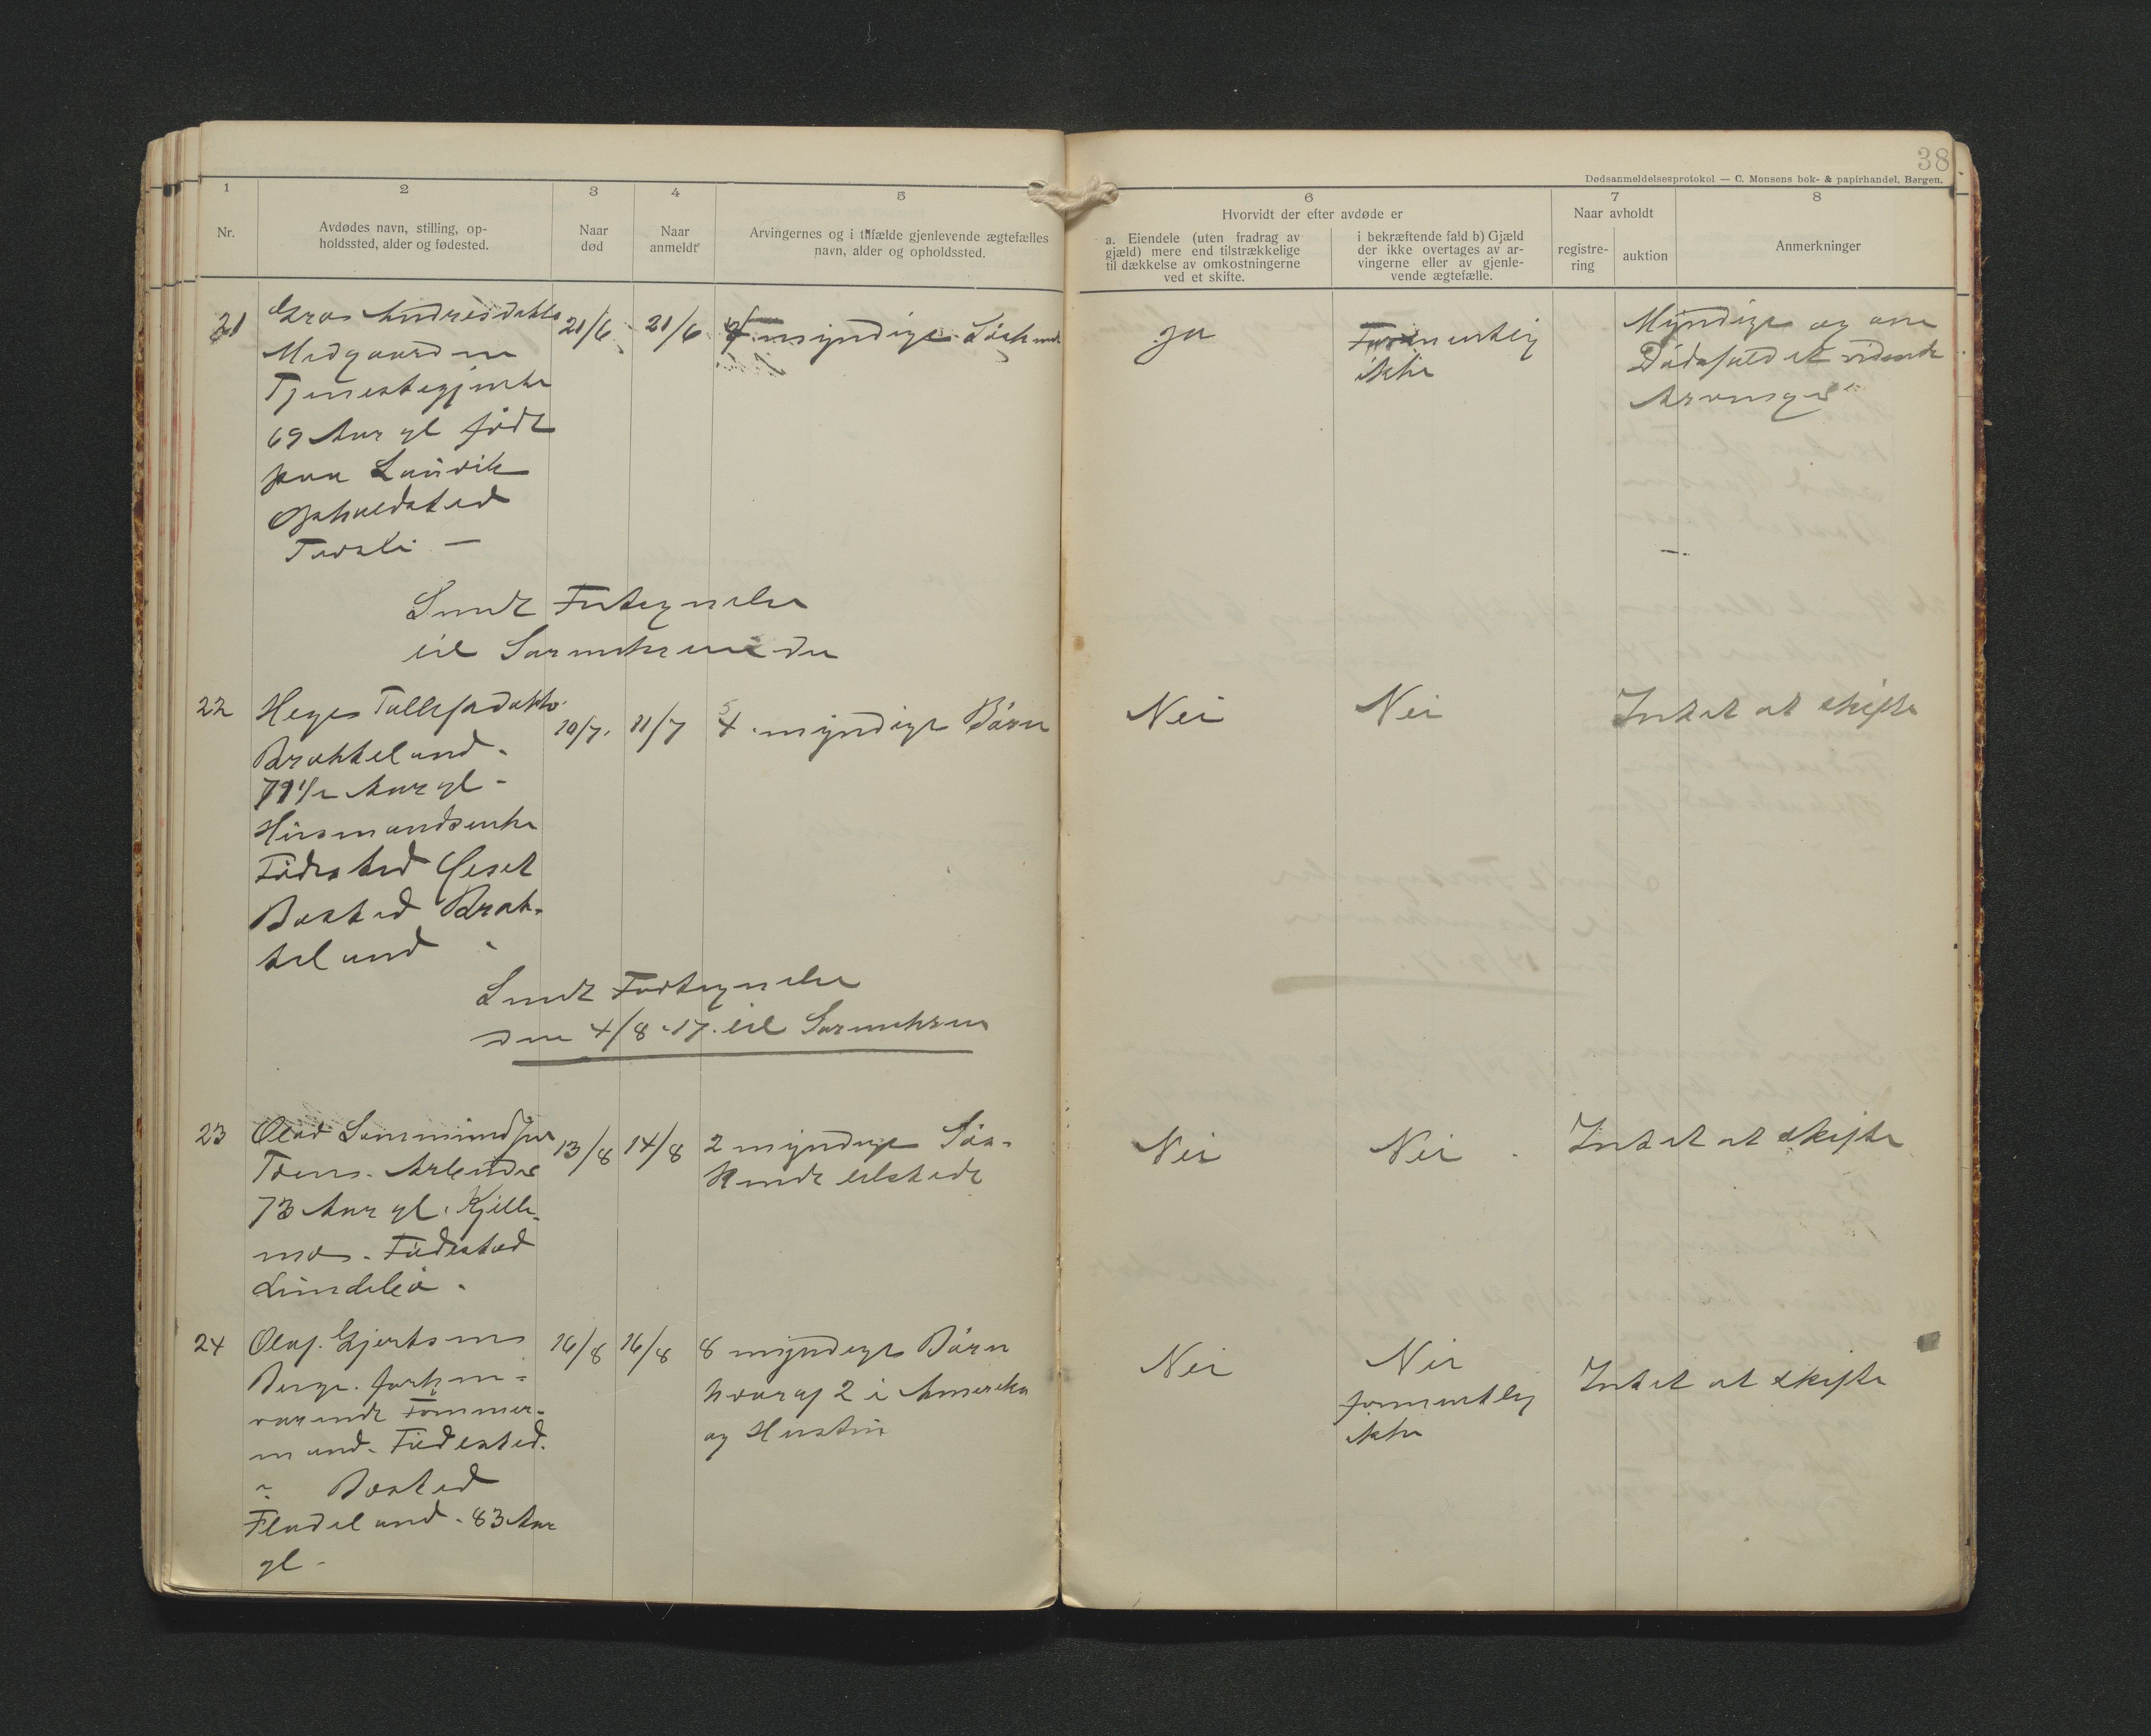 38
Dødsanmeldelsesprotokol — C. Monsens bok- & papirhandel, Bergen.
1 2 3 4 5 6 7 8
Nr.
Avdødes navn, stilling, op-
holdssted, alder og fødested.
Naar
død
Naar
anmeldt
Arvingernes og i tilfælde gjenlevende ægtefælles
navn, alder og opholdssted.
Hvorvidt der efter avdøde er
a. Eiendele (uten fradrag av
gjæld) mere end tilstrækkelige
til dækkelse av omkostningerne
ved et skifte.
i bekræftende fald b) Gjæld
der ikke overtages av ar-
vingerne eller av gjenle-
vende ægtefælle.
Naar avholdt
registre-
ring
auktion
Anmerkninger
21
Gro Andresdatter
Midgaarden
Tjenestegjente
69 Aar gl født
paa Lauvik
Opholdsted
21/6
21/6
myndige Søskend
Ja
Formentlig
ikke
Myndige og om
Dødsfaldet vidende
Arvinger
Sendt Fortegnelse
til Sorenskriveren
22
Hege Tallefsdatter
Brotteland.
79½ Aar gl -
Husmandsenke
Fødested
Bosted Brot-
teland
10/7.
11/7
5
4 myndige Børn
Nei
Nei
Intet at skifte
Sendt Fortegnelse
den 4/8-17. til Sorenskriv
23
Olav
73 Aar gl.
mo. Fødested
13/8
14/8
2 myndige Søs-
kende tilstede
Nei
Nei
Intet at skifte
24
Olaf Gjertsen
Berge. forhen-
værende Tømmer-
mand. Fødested.
" Bosted
Fladeland. 83 Aar
gl -
16/8
16/8
8 myndige Børn
hvoraf 2 i Amerika
og Hustru
Nei
Nei
formentlig
ikke
Intet at skifte